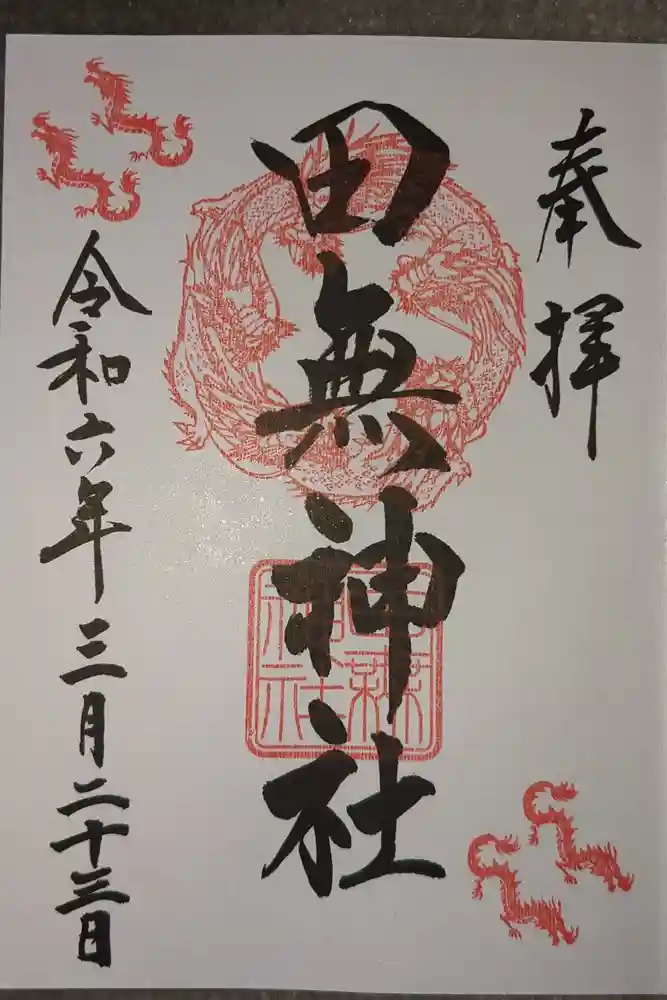 奉拝
田無神社
田無神社
令和六年三月二十三日